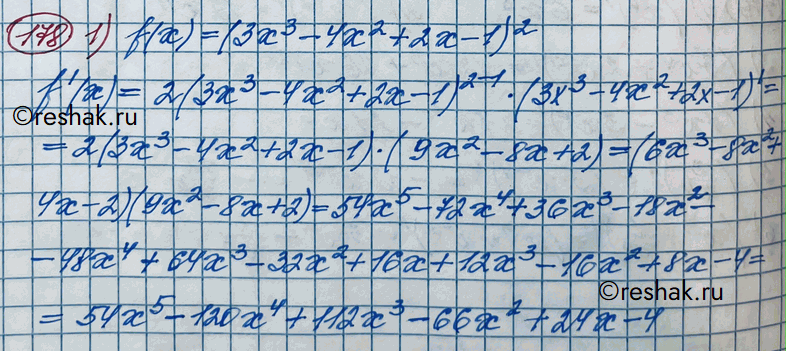 178 1) f(x) = (3x³ - 4x² + 2x - 1)²
f'(x) = 2(3x³ - 4x² + 2x - 1)²⁻¹ · (3x³ - 4x² + 2x - 1)' =
©reshak.ru
= 2(3x³ - 4x² + 2x - 1) · (9x² - 8x + 2) = (6x³ - 8x² +
4x - 2)(9x² - 8x + 2) = 54x⁵ - 72x⁴ + 36x³ - 18x² -
- 48x⁴ + 64x³ - 32x² + 16x + 12x³ - 16x² + 8x - 4 =
©reshak.ru
= 54x⁵ - 120x⁴ + 112x³ - 66x² + 24x - 4